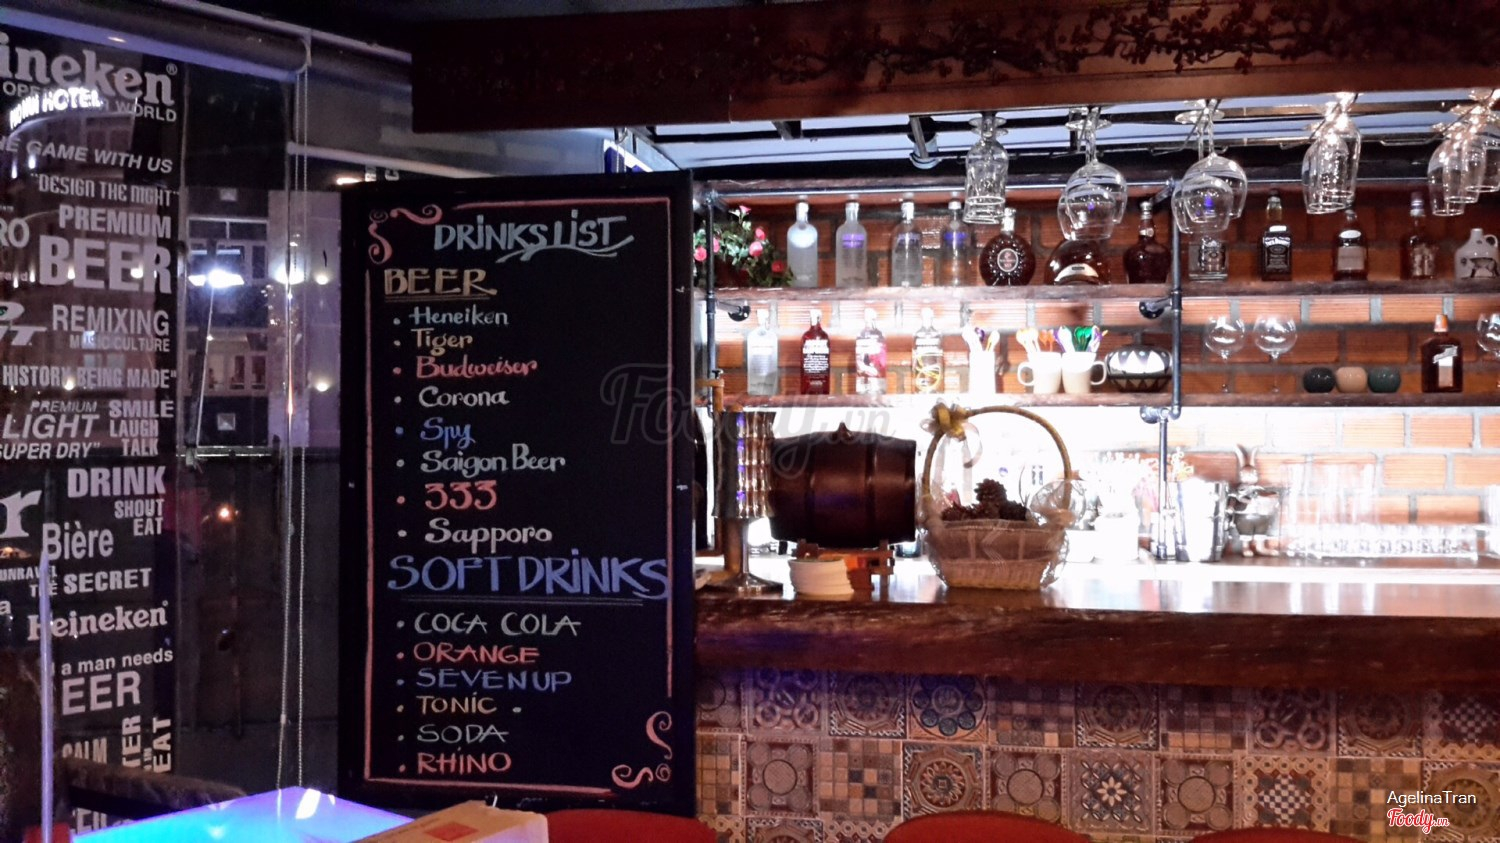 ineken®
OPEN
WORLD
HOTEL
E GAME WITH US
"DESIGN THE NIGHT"
PREMIUM
RO
BEER
REMIXING
MUSIC CULTURE
HISTORY BEING MADE"
PREMIUM
LIGHT
SMILE
LAUGH
TALK
SUPER DRY"
DRINK
SHOUT
EAT
r
Bière
UNRAVEL
THE SECRET
Heineken
a man needs
EER
CALM
EAT
DRINKS LIST
BEER
Heneiken
Tiger
Budweiser
Corona
Spy
Saigon Beer
333
Sapporo
SOFT DRINKS
COCA COLA
ORANGE
SEVENUP
TONIC
SODA
RHINO
Foody.vn
AgelinaTran
Foody.vn